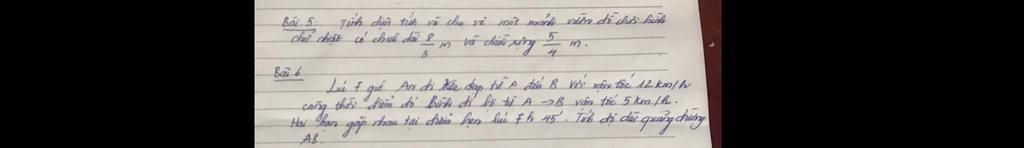 Bài 5. Tính diện tích và chu vi một mảnh vườn có hình
chữ nhật có chiều dài 8/3 m và chiều rộng 5/4 m.
Bài 6
Lúc 7 giờ An đi xe đạp từ A đến B với vận tốc 12 km/h
cùng thời điểm đó Bình đi bộ từ A → B vận tốc 5 km/h.
Hai bạn gặp nhau tại điểm hẹn lúc 7h 45'. Tính độ dài quãng đường
AB.